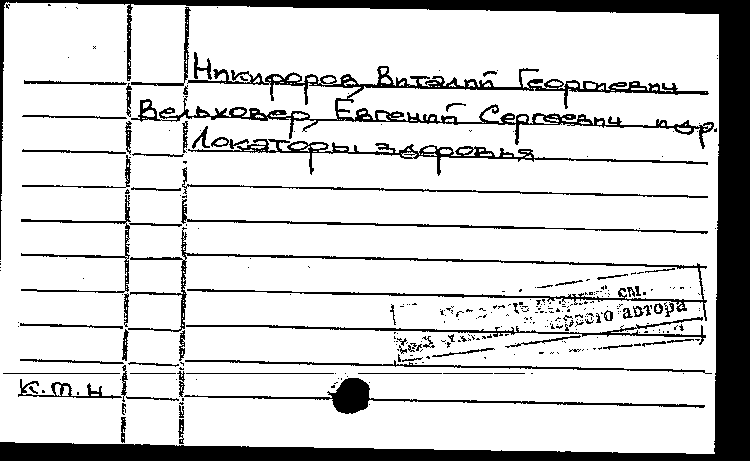 Никифоров, Виталий Георгиевич
Вельховер, Евгений Сергеевич и др.
Локаторы здоровья
см.
первого автора
к.т.н.